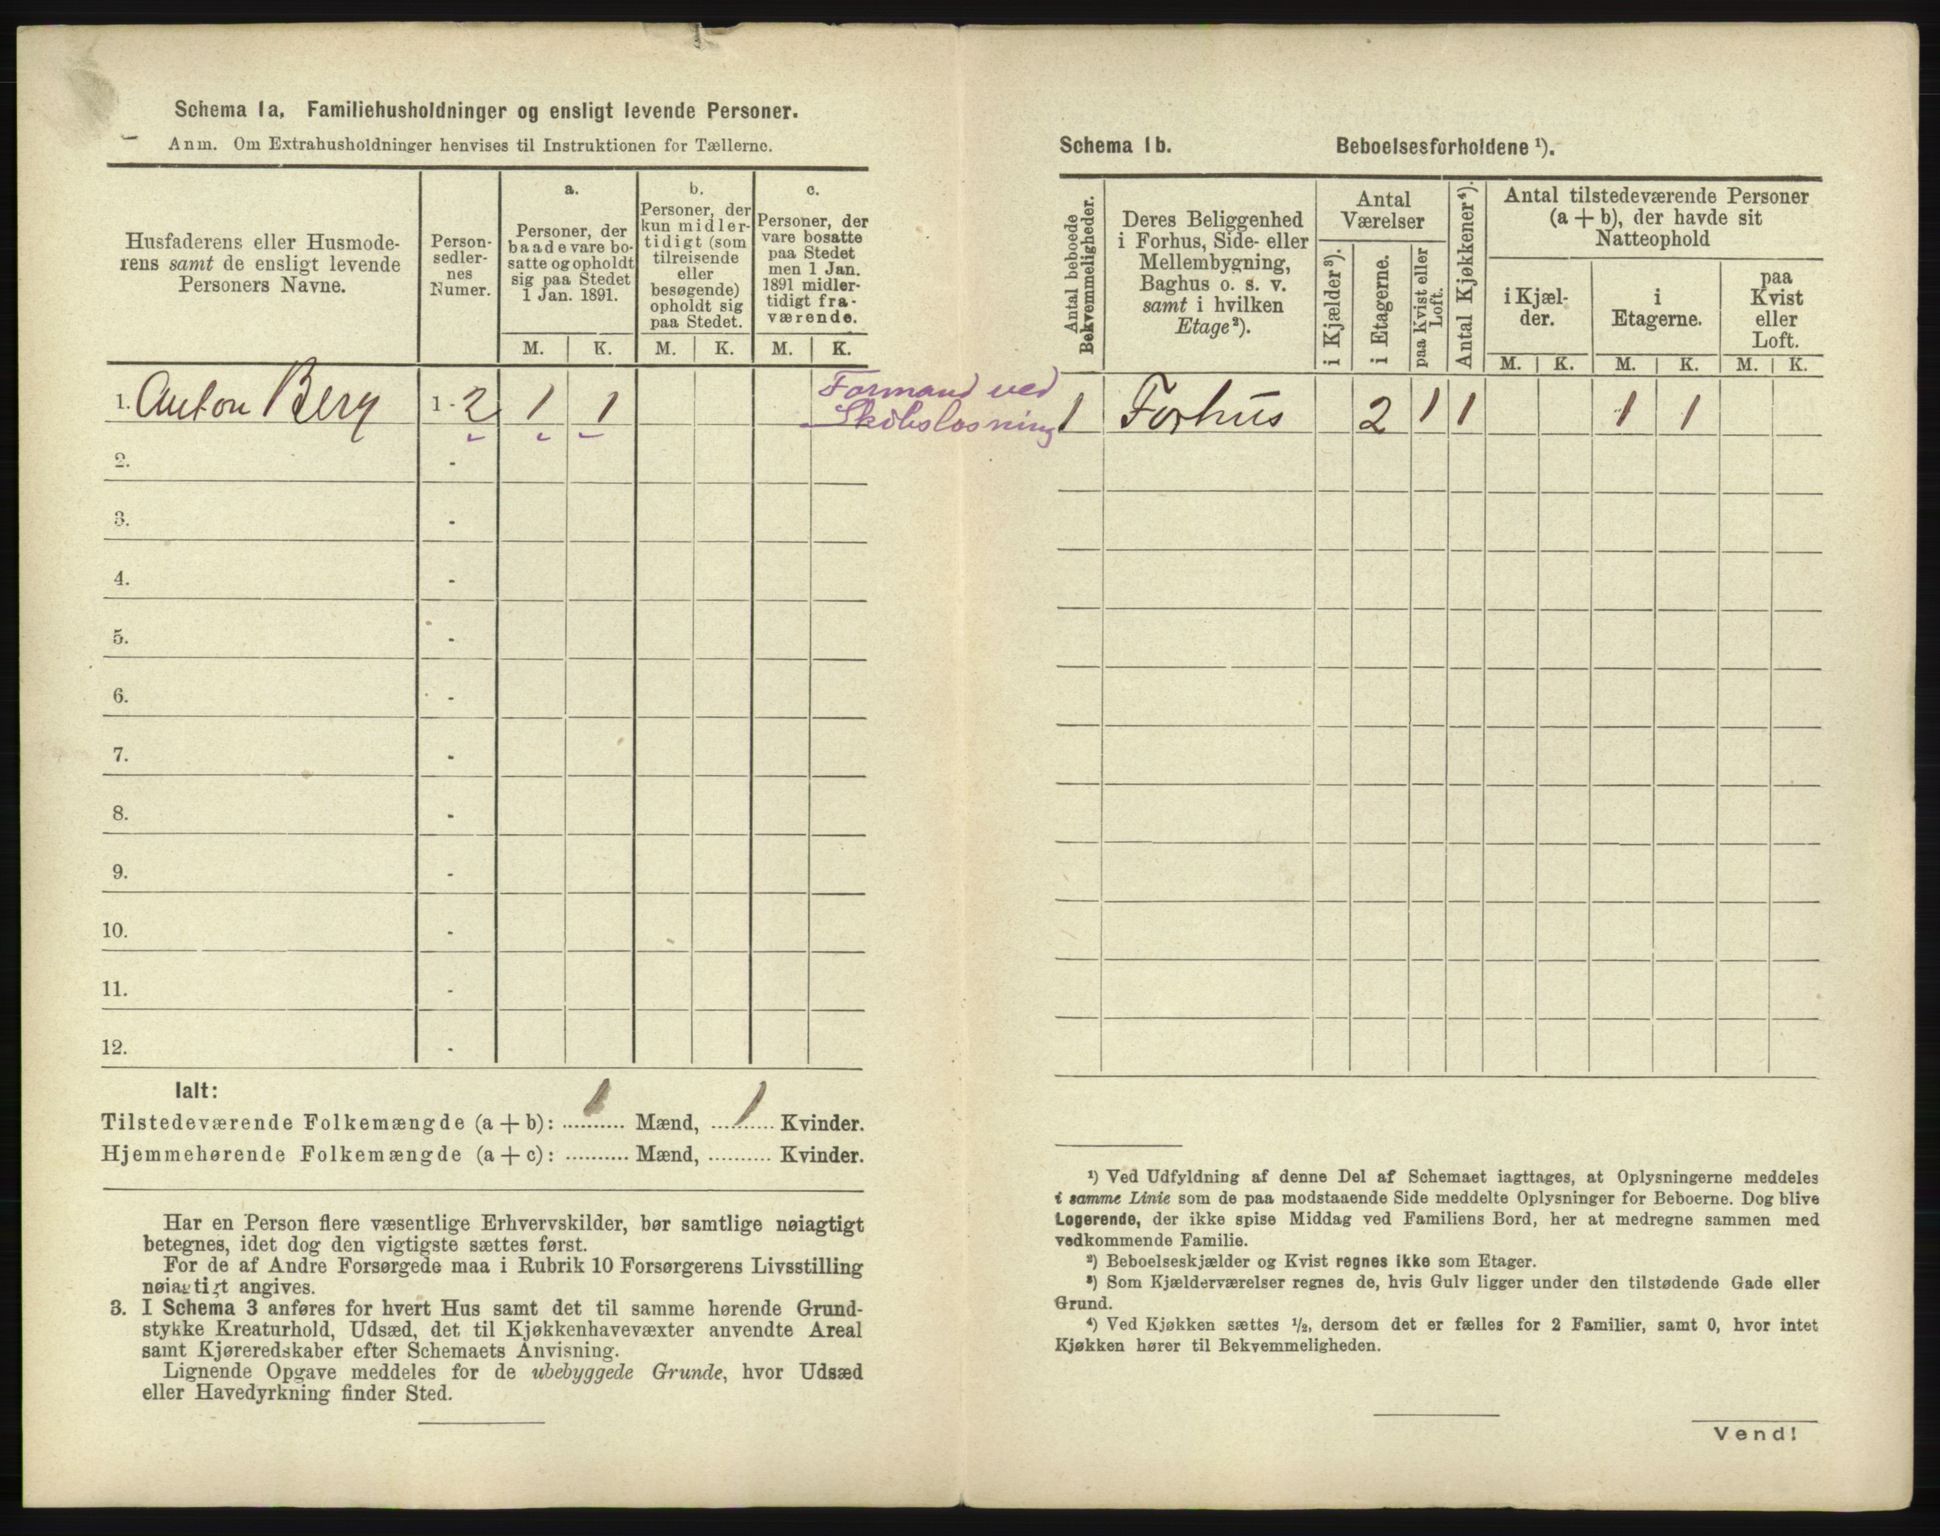 Schema 1a, Familiehusholdninger og ensligt levende Personer.
Anm. Om Extrahusholdninger henvises til Instruktionen for Tællerne.
Husfaderens eller Husmode-
rens samt de ensligt levende
Personers Navne.
Person-
sedler-
nes
Numer.
a.
Personer, der
baade vare bo-
satte og opholdt
sig paa Stedet
1 Jan. 1891.
b.
Personer, der
kun midler-
tidigt (som
tilreisende
eller
besøgende)
opholdt sig
paa Stedet.
c.
Personer, der
vare bosatte
paa Stedet
men 1 Jan.
1891 midler-
tidigt fra-
værende.
M. K. M. K. M. K.
1. Anton Berg 1 - 2 1 1
Formand ved
Skibslosning
2. -
3. -
4. -
5. -
6. -
7. -
8. -
9. -
10. -
11. -
12. -
Ialt:
Tilstedeværende Folkemængde (a + b): 1 Mænd, 1 Kvinder.
Hjemmehørende Folkemængde (a + c): .......... Mænd, .......... Kvinder.
Har en Person flere væsentlige Erhvervskilder, bør samtlige nøiagtigt
betegnes, idet dog den vigtigste sættes først.
For de af Andre Forsørgede maa i Rubrik 10 Forsørgerens Livsstilling
nøiagtigt angives.
3. I Schema 3 anføres for hvert Hus samt det til samme hørende Grund-
stykke Kreaturhold, Udsæd, det til Kjøkkenhavevæxter anvendte Areal
samt Kjøreredskaber efter Schemaets Anvisning.
Lignende Opgave meddeles for de ubebyggede Grunde, hvor Udsæd
eller Havedyrkning finder Sted.
Schema 1b. Beboelsesforholdene ¹).
Antal beboede
Bekvemmeligheder.
Deres Beliggenhed
i Forhus, Side- eller
Mellembygning,
Baghus o. s. v.
samt i hvilken
Etage ²).
Antal
Værelser
i Kjælder ³).
i Etagerne.
paa Kvist eller
Loft.
Antal Kjøkkener ⁴).
Antal tilstedeværende Personer
(a + b), der havde sit
Natteophold
i Kjæl-
der.
i
Etagerne.
paa
Kvist
eller
Loft.
M. K. M. K. M. K.
1 Forhus 2 1 1 1 1
¹) Ved Udfyldning af denne Del af Schemaet iagttages, at Oplysningerne meddeles
i samme Linie som de paa modstaaende Side meddelte Oplysninger for Beboerne. Dog blive
Logerende, der ikke spise Middag ved Familiens Bord, her at medregne sammen med
vedkommende Familie.
²) Beboelseskjælder og Kvist regnes ikke som Etager.
³) Som Kjælderværelser regnes de, hvis Gulv ligger under den tilstødende Gade eller
Grund.
⁴) Ved Kjøkken sættes ½, dersom det er fælles for 2 Familier, samt 0, hvor intet
Kjøkken hører til Bekvemmeligheden.
Vend!